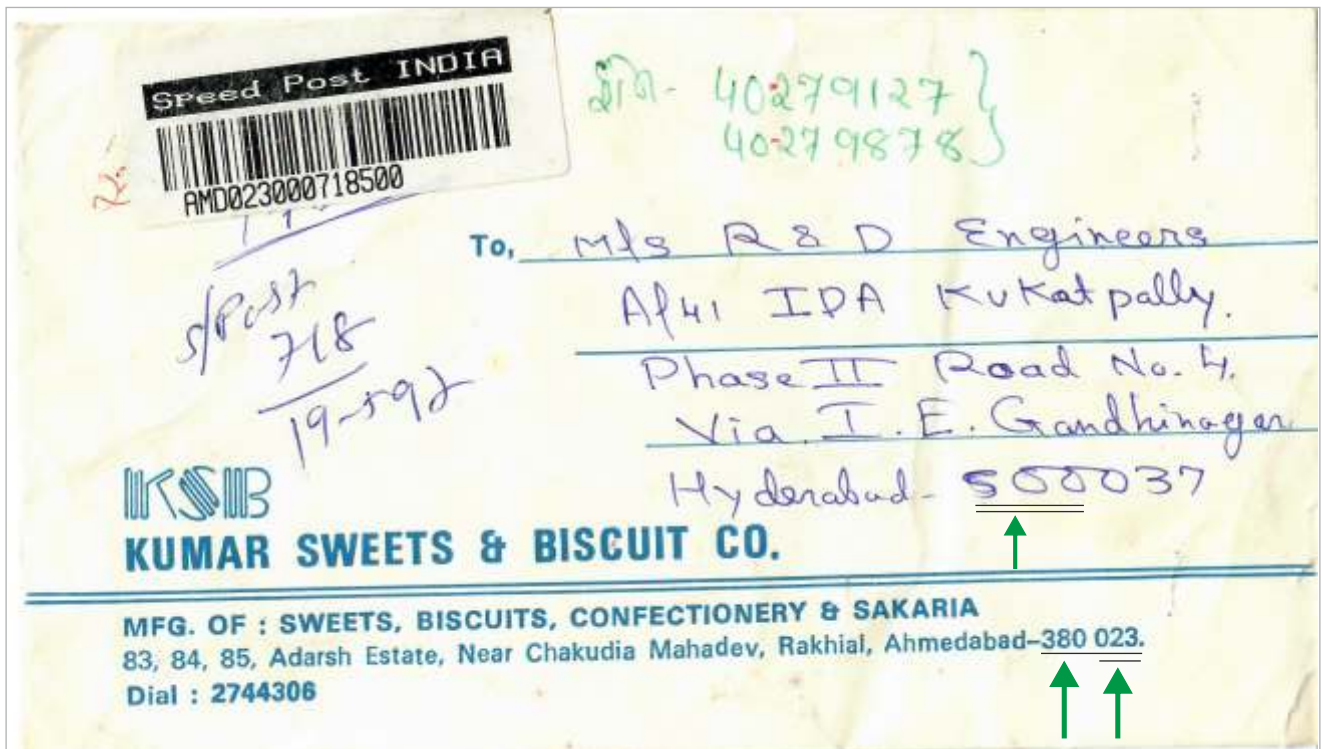 Speed Post INDIA
AMD023000718500
40279127
40279878
To, M/s R & D Engineers
A/41 IDA Kukatpally.
Phase II Road No. 4.
Via. I. E. Gandhinagar
Hyderabad- 500037
S/Post
718
KSB
KUMAR SWEETS & BISCUIT CO.
MFG. OF : SWEETS, BISCUITS, CONFECTIONERY & SAKARIA
83, 84, 85, Adarsh Estate, Near Chakudia Mahadev, Rakhial, Ahmedabad–380 023.
Dial : 2744306